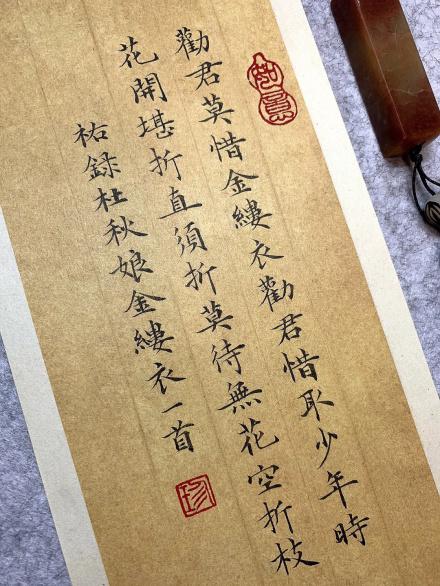 勸君莫惜金縷衣勸君惜取少年時
花開堪折直須折莫待無花空折枝
祐録杜秋娘金縷衣一首
珍